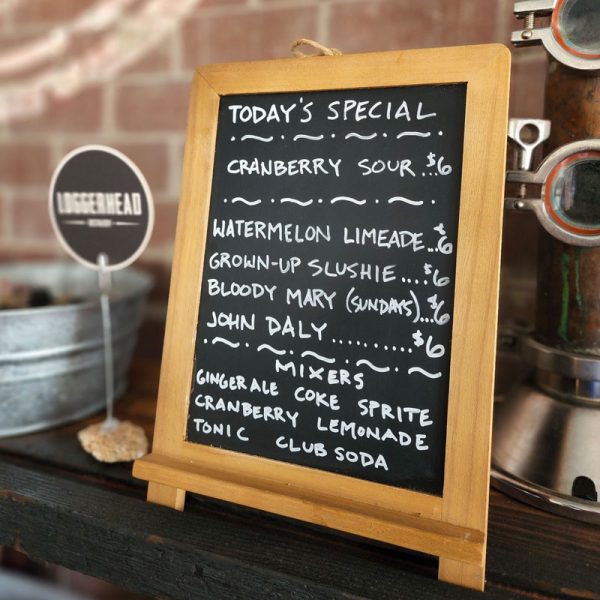 LOGGERHEAD
TODAY'S SPECIAL
CRANBERRY SOUR...$6
WATERMELON LIMEADE...$6
GROWN-UP SLUSHIE....$6
BLOODY MARY (SUNDAYS)...$6
JOHN DALY..........$6
MIXERS
GINGERALE COKE SPRITE
CRANBERRY LEMONADE
TONIC CLUB SODA